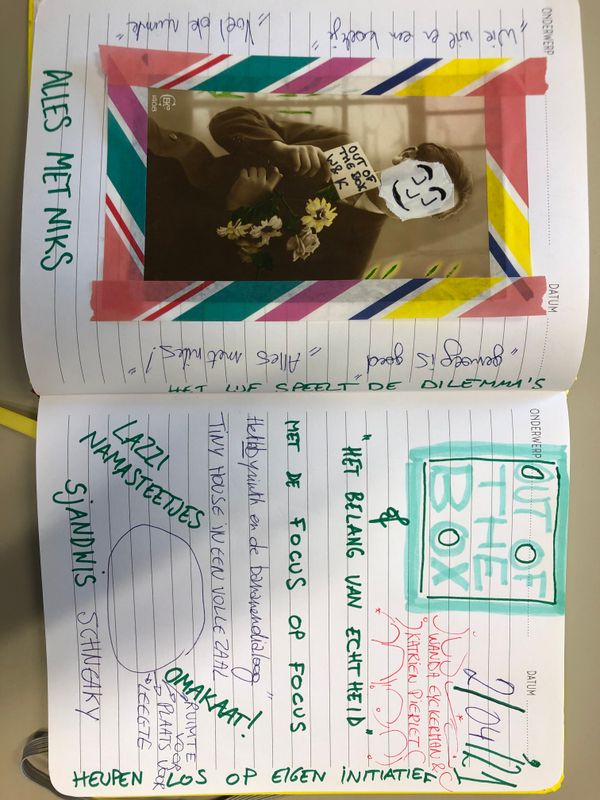 ONDERWERP
DATUM
"Wie wil er een koekje"
"Voel de ruimte"
OUT OF
THE BOX
W & K
"genoeg is goed"
"Alles met niks!"
ALLES MET NIKS
HET LIJF SPEELT DE DILEMMA'S
ONDERWERP
DATUM
OUT OF
THE
BOX
2/04/21
WANDA EYCKERMAN
KATRIEN PIERLET
"HET BELANG VAN ECHTHEID"
of
MET DE FOCUS OP FOCUS
en de bananendialoog"
TINY HOUSE IN EEN VOLLE ZAAL
LAZZI
NAMASTEETJES
OMAKAAT!
RUIMTE
VOOR
PLAATS VOOR
LEEGTE
SJANDWIS SCHNEAKY
HEUPEN LOS OP EIGEN INITIATIEF